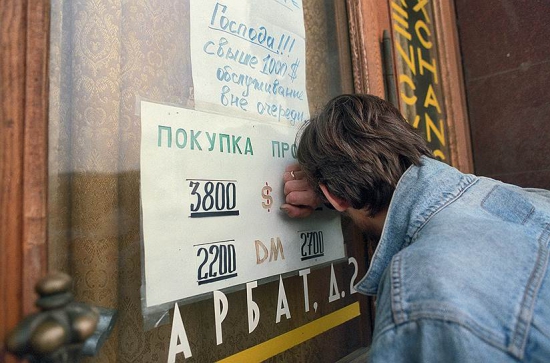 Господа!!!
свыше 1000$
обслуживание
вне очереди
ПОКУПКА ПРО
3800 $
2200 DM 2700
АРБАТ, Д. 2
EXCHANG